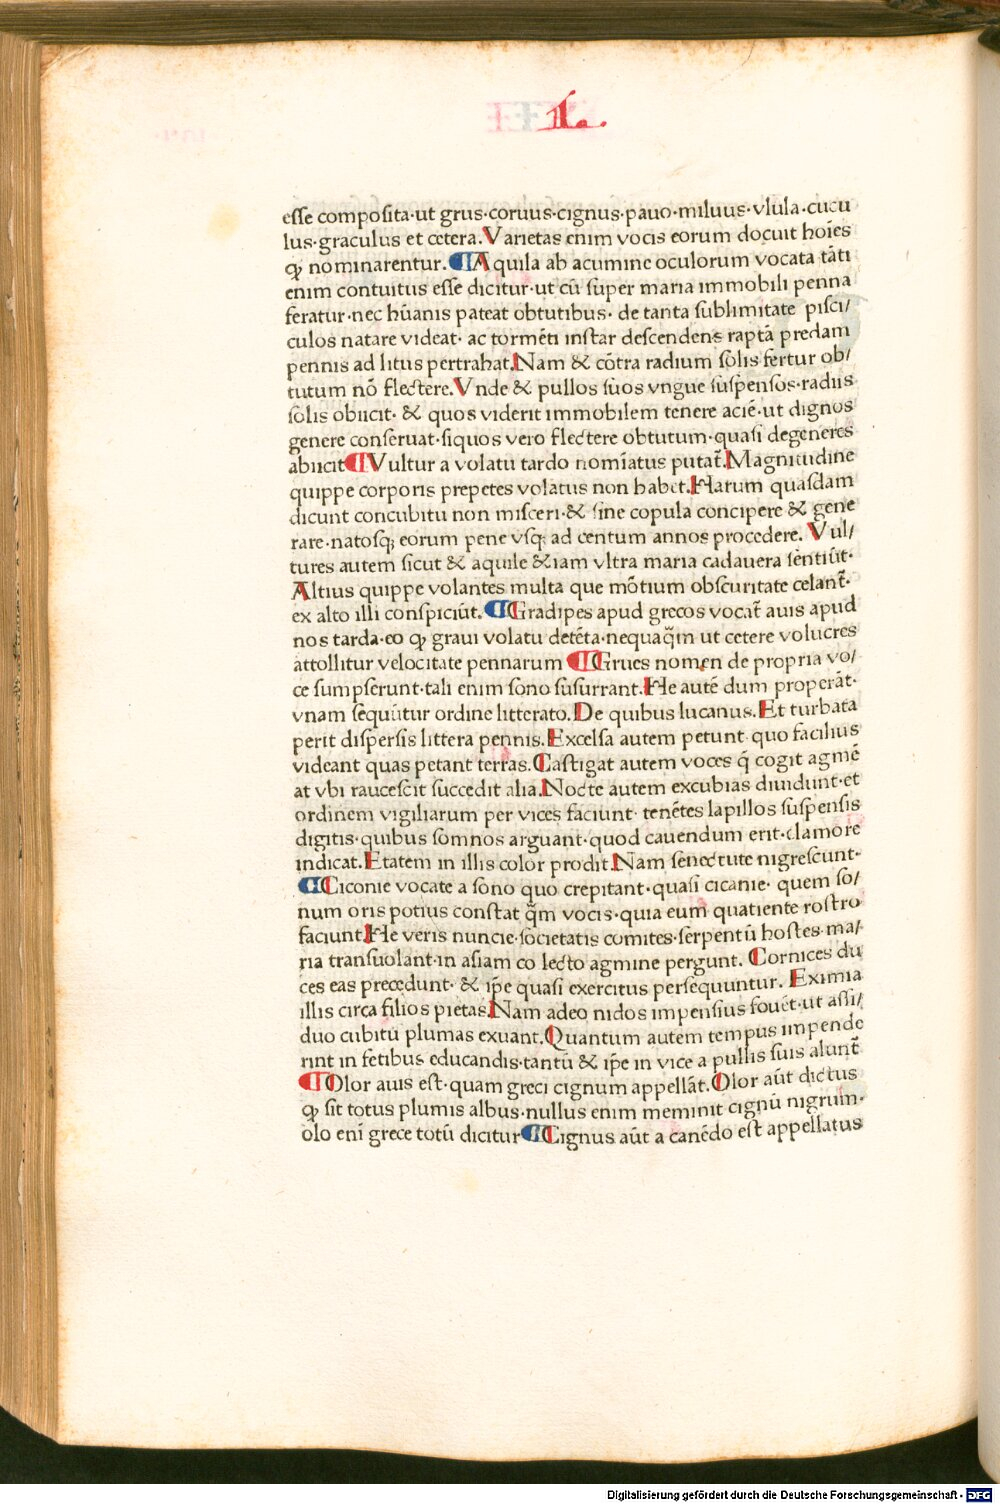 L.
esse composita·ut grus·coruus·cignus·pauo·miluus·vlula·cucu
lus·graculus et cetera. Varietas enim vocis eorum docuit hoīes
ꝙ nominarentur. ¶ Aquila ab acumine oculorum vocata tāti
enim contuitus esse dicitur·ut cū super maria immobili penna
feratur·nec hūanis pateat obtutibus· de tanta sublimitate pisci/
culos natare videat· ac tormēti instar descendens raptā predam
pennis ad litus pertrahat. Nam & cōtra radium solis fertur ob/
tutum nō flectere. Vnde & pullos suos vngue suspensos·radiis
solis obiicit· & quos viderit immobilem tenere aciē·ut dignos
genere conseruat·siquos vero flectere obtutum·quasi degeneres
abiicit ¶ Vultur a volatu tardo nomīatus putat̄. Magnitudine
quippe corporis prepetes volatus non habet. Harum quasdam
dicunt concubitu non misceri·& sine copula concipere & gene
rare·natosq; eorum pene vsq; ad centum annos procedere. Vul/
tures autem sicut & aquile &iam vltra maria cadauera sentiūt·
Altius quippe volantes multa que mōtium obscuritate celant̄·
ex alto illi conspiciūt. ¶ Gradipes apud grecos vocat̄ auis apud
nos tarda·eo ꝙ graui volatu detēta·nequaq̄m ut cetere volucres
attollitur velocitate pennarum ¶ Grues nomen de propria vo/
ce sumpserunt·tali enim sono susurrant. He autē dum properāt·
vnam sequūtur ordine litterato. De quibus lucanus. Et turbata
perit dispersis littera pennis. Excelsa autem petunt quo facilius
videant quas petant terras. Castigat autem voces q̄ cogit agmē
at vbi raucescit succedit alia. Nocte autem excubias diuidunt·et
ordinem vigiliarum per vices faciunt· tenētes lapillos suspensis
digitis·quibus somnos arguant·quod cauendum erit·clamore
indicat. Etatem in illis color prodit. Nam senectute nigrescunt·
¶ Ciconie vocate a sono quo crepitant·quasi cicanie· quem so/
num oris potius constat q̄m vocis·quia eum quatiente rostro
faciunt. He veris nuncie·societatis comites·serpentū hostes·ma/
ria transuolant·in asiam co lecto agmine pergunt. Cornices du
ces eas precedunt· & ip̄e quasi exercitus persequuntur. Eximia
illis circa filios pietas. Nam adeo nidos impensius fouēt·ut assi/
duo cubitu plumas exuant. Quantum autem tempus impende
rint in fetibus educandis·tantū & ip̄e in vice a pullis suis alunt̄
¶ Olor auis est·quam greci cignum appellāt. Olor aūt dictus
ꝙ sit totus plumis albus·nullus enim meminit cignū nigrum·
olo enī grece totū dicitur ¶ Cignus aūt a canēdo est appellatus
Digitalisierung gefördert durch die Deutsche Forschungsgemeinschaft - DFG